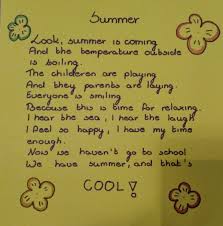 Summer
Look, summer is coming
And the temperature outside
is boiling.
The childeren are playing
And they parents are laying.
Everyone is smiling
Because this is time for relaxing.
I hear the sea, I hear the laugh
I feel so happy, I have my time
enough.
Now we haven't go to school
We have summer, and that's
COOL!